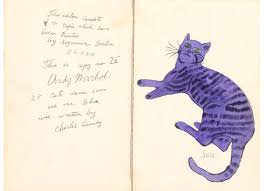 This edition consists
of 190 copies which have
been printed
by Seymour Berlin
This is copy no 25
Andy Warhol
25 cats name sam
and one Blue
was written by
Charles Lisanby
Sam